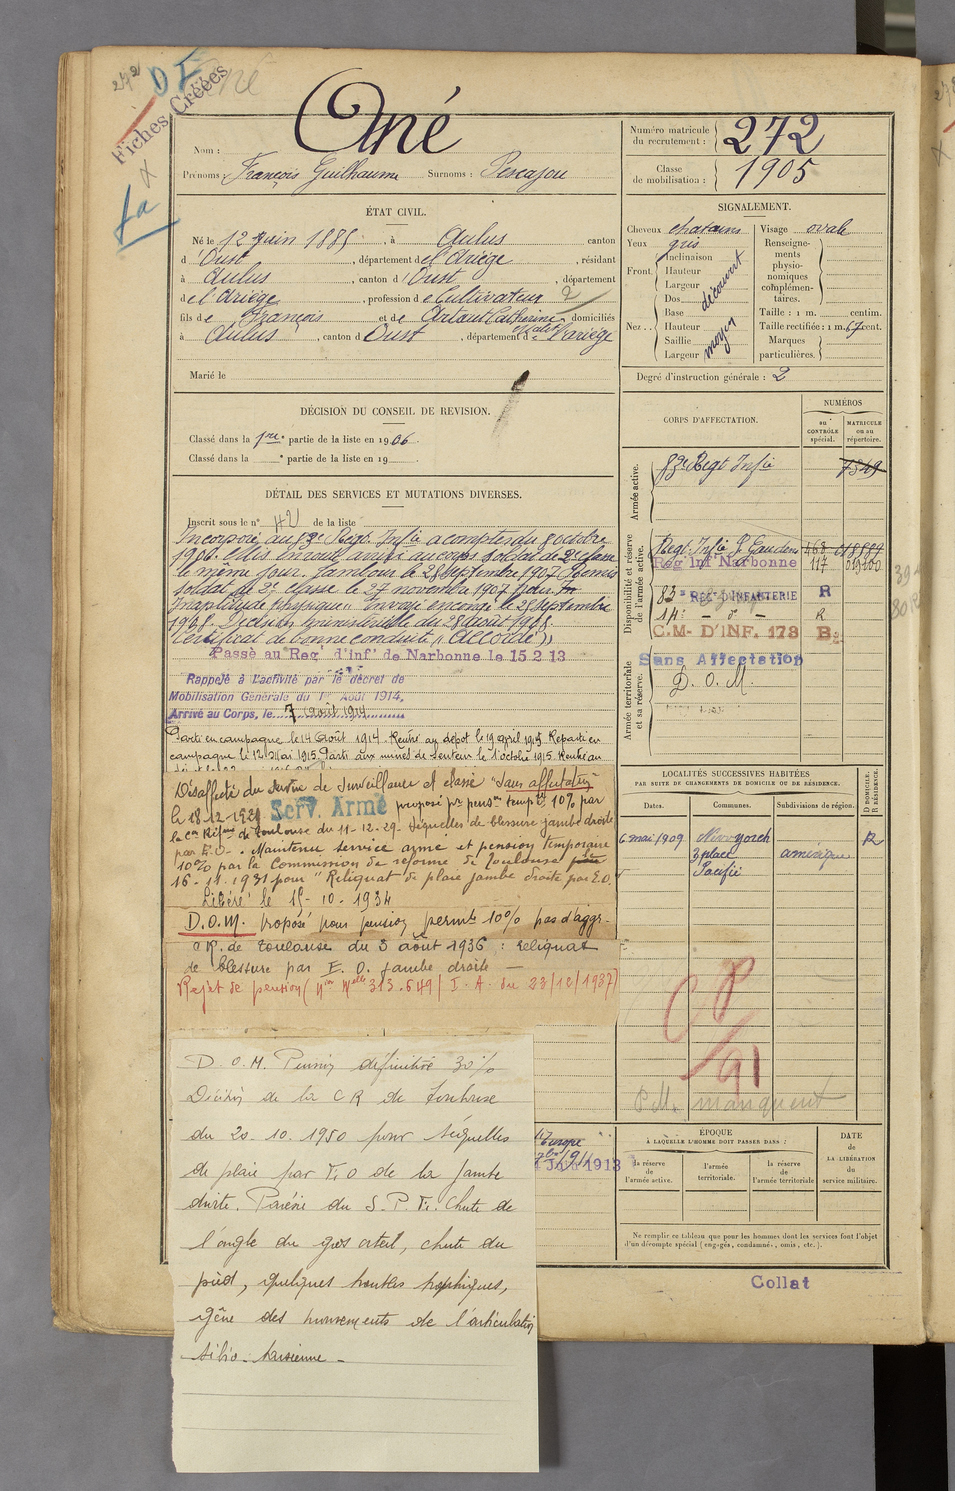 272
D I
Fiches Créées
fa
Nom : Ané
Prénoms : François Guilhaume Surnoms : Pescajou
ÉTAT CIVIL.
Né le 12 juin 1885, à Aulus canton
d'Oust, département de l'Ariège, résidant
à Aulus, canton d'Oust, département
de l'Ariège, profession de Cultivateur 2
fils de François et de Artaut Catherine domiciliés
à Aulus, canton d'Oust, département de l'ariège
Marié le
DÉCISION DU CONSEIL DE REVISION.
Classé dans la 1re partie de la liste en 1906.
Classé dans la e partie de la liste en 19
DÉTAIL DES SERVICES ET MUTATIONS DIVERSES.
Inscrit sous le n° de la liste
Incorporé au 83e Régt. Infie a compter du 8 octobre
1906. Mis en route arrivé au corps soldat de 2e classe
le même jour. Tambour le 28 septembre 1907 Remis
soldat de 2e classe le 27 novembre 1907 pour In
Inaptitude physique" Envoyé en congé le 25 septembre
1908. Décision ministérielle du 28 août 1908.
Certificat de bonne conduite "Accordé"
Passé au Reg' d'inf' de Narbonne le 15 2 13
Rappelé à l'activité par le décret de
Mobilisation Générale du 1er Août 1914,
Arrivé au Corps, le 7 Août 1914
Parti en campagne le 14 Août 1914 Rentré au dépot le 19 avril 1915 Reparti en
campagne le 12 Mai 1915. Parti aux mines de Sentein le 1 octobre 1915 Rentré au
Désaffecté du service de surveillance et classé "Sans affectation"
le 18-12-1929 Serv. Armé proposé pr pension tempre 10% par
la Con Réfme de Toulouse du 11-12-29- séquelles de blessure jambe droite
par E.O-. Maintenu service armé et pension temporaire
10% par la Commission de réforme de Toulouse
16-11-1931 pour "Reliquat de plaie jambe droite par E.O.
Libéré le 15-10-1934
D.O.M. Proposé pour pension permte 10% pas d'aggr-
C R. de Toulouse du 3 août 1936 : reliquat
de blessure par E. O. jambe droite —
Rejet de pension 313.649 / I. A. du 23/12/1937)
D. O. M. Pension définitive 30%
Décision de la C R de Toulouse
du 20. 10. 1950 pour séquelles
de plaie par E. O de la jambe
droite. Parésie du S. P. E. Chute de
l'ongle du gros orteil, chute du
pied, quelques troubles trophiques,
gêne des mouvements de l'articulation
tibio-tarsienne -
Europe
1913
Numéro matricule du recrutement : 272
Classe de mobilisation : 1905
SIGNALEMENT.
Cheveux chatains Visage ovale
Yeux gris
Front. Inclinaison
Hauteur
Largeur
découvert
Nez.. Dos
Base
Hauteur
Saillie
Largeur
moyen
Renseignements physionomiques complémentaires.
Taille : 1 m. centim.
Taille rectifiée : 1 m. 67 cent.
Marques particulières.
Degré d'instruction générale : 2
CORPS D'AFFECTATION.
NUMÉROS
au CONTRÔLE spécial.
MATRICULE ou au répertoire.
Armée active.
83e Regt Infie 7849
Disponibilité et réserve de l'armée active.
Regt Infie St Gaudens 468
Reg Inf Narbonne 117
83e REGt D'INFANTERIE R
14e - d° - R
C.M- D'INF. 173
Armée territoriale et sa réserve.
Sans Affectation
D. O. M.
LOCALITÉS SUCCESSIVES HABITÉES
PAR SUITE DE CHANGEMENTS DE DOMICILE OU DE RÉSIDENCE.
Dates. Communes. Subdivisions de région.
D DOMICILE. R RÉSIDENCE.
6 mai 1909 New yorck R
place amérique
Pacific
CP
91
manquent
ÉPOQUE
À LAQUELLE L'HOMME DOIT PASSER DANS :
la réserve de l'armée active.
l'armée territoriale.
la réserve de l'armée territoriale
DATE de LA LIBÉRATION du service militaire.
Ne remplir ce tableau que pour les hommes dont les services font l'objet
d'un décompte spécial (engagés, condamnés, omis, etc.).
Collat